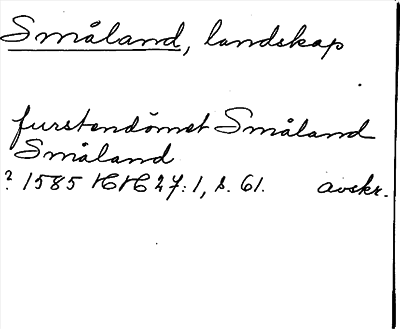 Småland, landskap
furstendömet Småland
Småland
? 1585 HH 27:1, s. 61. avskr.